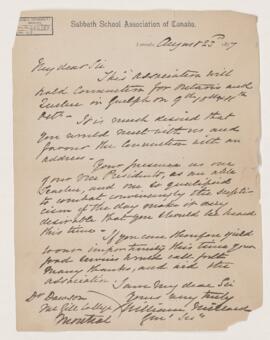 Sabbath School Association of Canada.
August 25th 1877
My dear Sir
This Association will
hold Convention for Ontario and
Quebec in Guelph on
Oct. It is much desired that
you would meet with us and
favour the Convention with an
address.
Your presence as one
of our Vice Presidents, as an able
Teacher, and one so qualified
to combat convincingly the
of the day makes it very
desirable that you should be heard
this time. If you can therefore yield
to our importunity this time your
good services would call forth
many thanks, and aid the
association.
I am My dear Sir
Dr Dawson Yours very truly
McGill College William Millard
Montreal Gen. Sec.